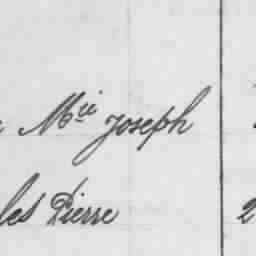 Mie Joseph
les Pierre 2